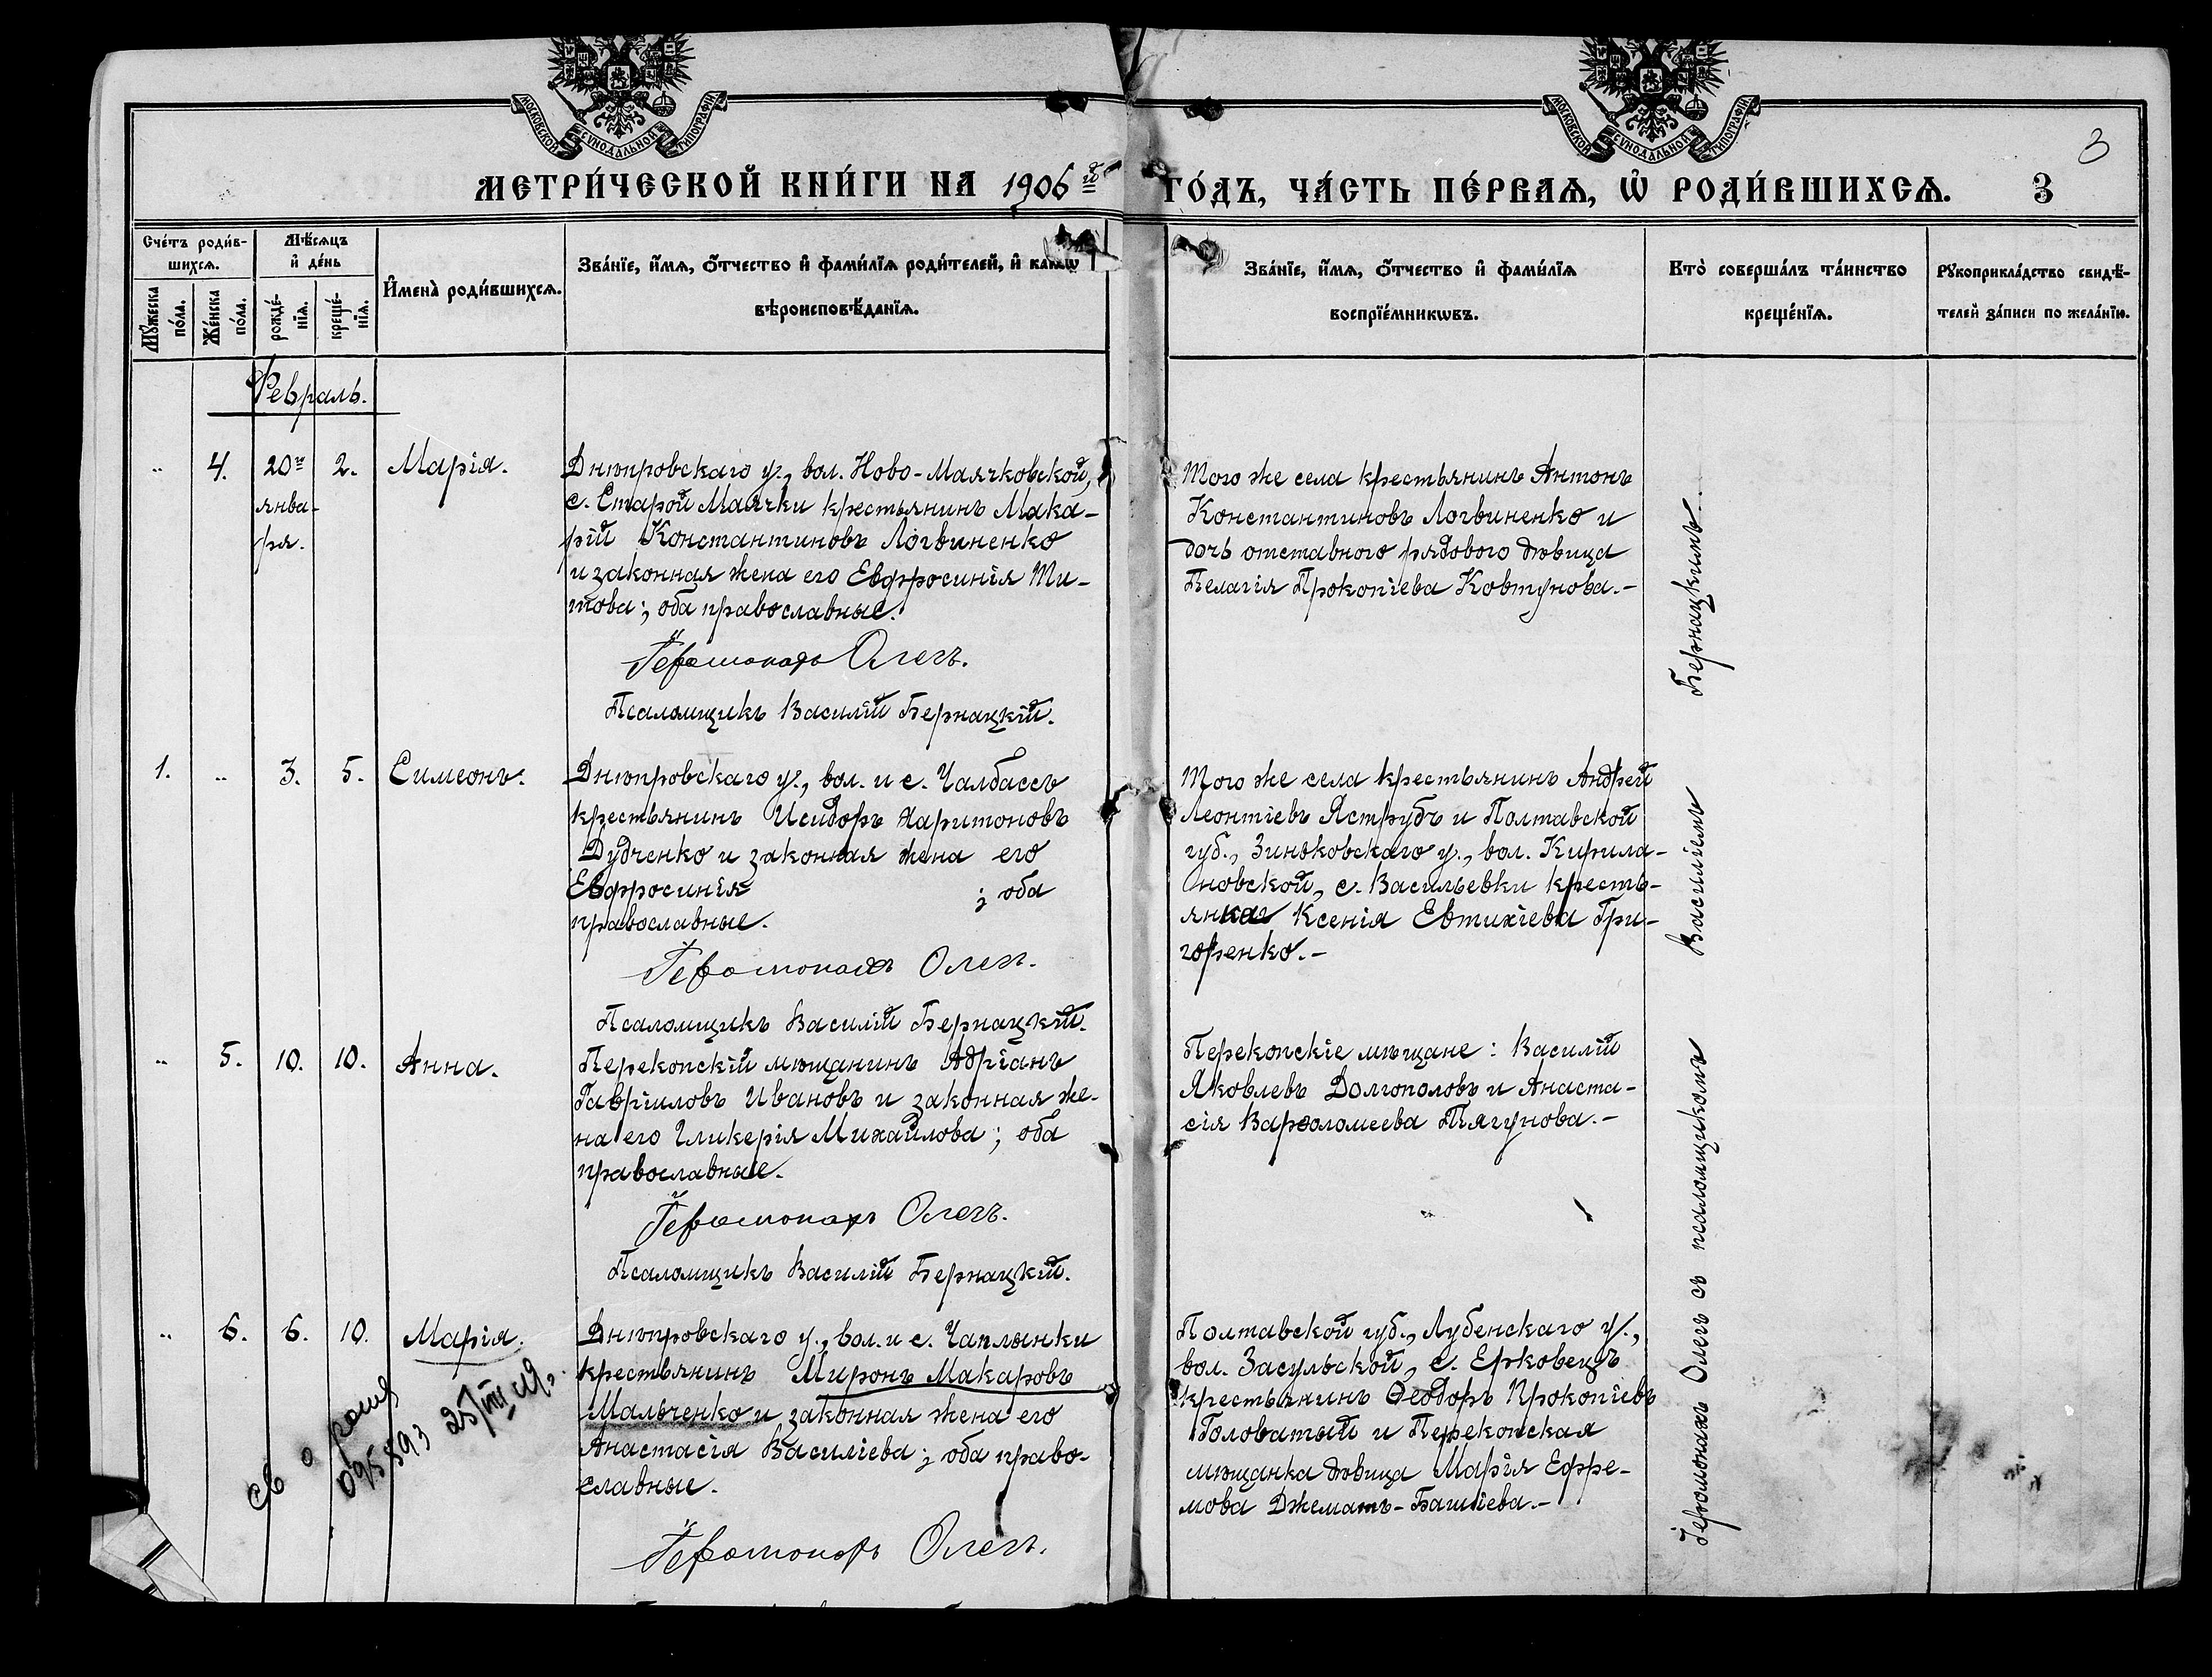 МОСКОВСКОЙ СУНОДАЛЬНОЙ ТИПОГРАФІИ
МОСКОВСКОЙ СУНОДАЛЬНОЙ ТИПОГРАФІИ
3
МЕТРИ́ЧЕСКОЙ КНИ́ГИ НА 1906 й
ГО́ДЪ, ЧА́СТЬ ПЕ́РВАѦ, Ѡ҆ РОДИ́ВШИХСѦ. 3
Сче́тъ роди́в-
шихсѧ.
Мꙋжеска по́ла.
Же́нска по́ла.
Мѣ́сѧцъ
и҆ де́нь
рожде́-нїѧ.
креще́-нїѧ.
И҆мена̀ роди́вшихсѧ.
Зва́нїе, и҆́мѧ, ѻ҆́тчество и҆ фами́лїѧ роди́телей, и҆ какѡ́
вѣроисповѣ́данїѧ.
Зва́нїе, и҆́мѧ, ѻ҆́тчество и҆ фами́лїѧ
воспрїе́мникѡвъ.
Кто̀ соверша́лъ та́инство
креще́нїѧ.
Рꙋкоприкла́дство свидѣ́-
телей за́писи по жела́нїю.
Февраль.
" 4. 20го янва-ря. 2. Марія.
Днѣпровскаго у., вол. Ново-Маячковской,
с. Старой Маячки крестьянинъ Мака-
рій Константиновъ Логвиненко
и законная жена его Евфросинія Ти-
това; оба православные.
Іеромонахъ Олегъ.
Псаломщикъ Василій Бернацкій.
Того же села крестьянинъ Антонъ
Константиновъ Логвиненко и
дочь отставного рядового дѣвица
Пелагія Прокопіева Ковтунова.-
1. " 3. 5. Симеонъ.
Днѣпровскаго у., вол. и с. Чалбассъ
крестьянинъ Исидоръ Харитоновъ
Дудченко и законная жена его
Евфросинія ; оба
православные.
Іеромонахъ Олегъ.
Псаломщикъ Василій Бернацкій.
Того же села крестьянинъ Андрей
Леонтіевъ Яструбъ и Полтавской
губ., Зиньковскаго у., вол. Кирила-
новской, с. Васильевки кресть-
янка Ксенія Евтихіева Гри-
горенко.-
" 5. 10. 10. Анна.
Перекопскій мѣщанинъ Адріанъ
Гавріиловъ Ивановъ и законная же-
на его Гликерія Михайлова; оба
православные.
Іеромонахъ Олегъ.
Псаломщикъ Василій Бернацкій.
Перекопскіе мѣщане: Василій
Яковлевъ Долгополовъ и Анаста-
сія Варѳоломеева Тягунова.-
" 6. 6. 10. Марія.
св о рожд
095893 25/VIII 49г.
Днѣпровскаго у., вол. и с. Чаплынки
крестьянинъ Миронъ Макаровъ
Мальченко и законная жена его
Анастасія Василіева; оба право-
славные.
Іеромонахъ Олегъ.
Полтавской губ., Лубенскаго у.,
вол. Засульской, с. Ерковецъ
крестьянинъ Ѳеодоръ Прокопіевъ
Головатый и Перекопская
мѣщанка дѣвица Марія Ефре-
мова Джематъ-Башіева.-
Іеромонахъ Олегъ съ псаломщикомъ Василіемъ Бернацкимъ.